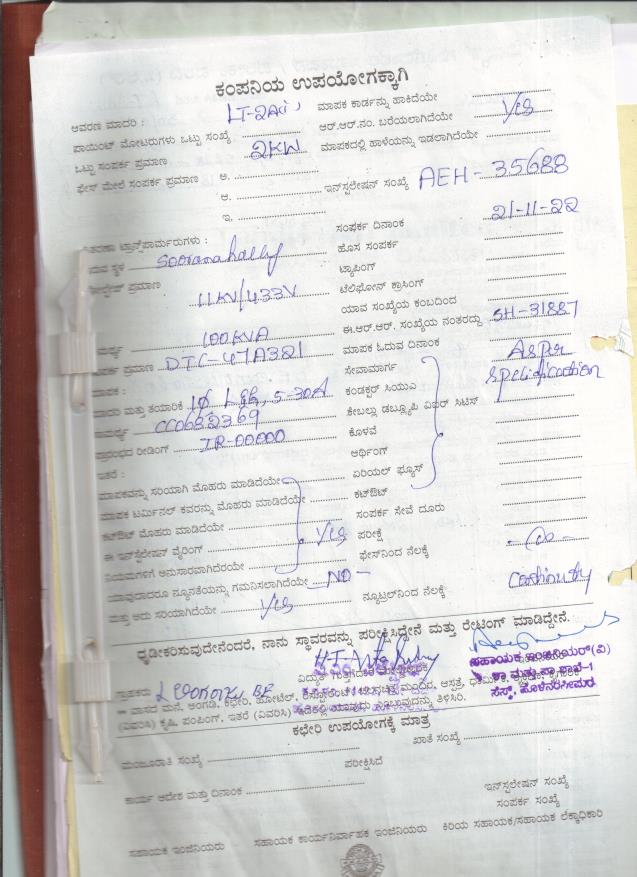 ಕಂಪನಿಯ ಉಪಯೋಗಕ್ಕಾಗಿ
ಆವರಣ ಮಾದರಿ : LT-2A(i) ಮಾಪಕ ಕಾರ್ಡನ್ನು ಹಾಕಿದೆಯೇ
ಪಾಯಿಂಟ್ ಮೋಟರುಗಳು ಒಟ್ಟು ಸಂಖ್ಯೆ ಆರ್.ಆರ್.ನಂ. ಬರೆಯಲಾಗಿದೆಯೇ Yes
ಒಟ್ಟು ಸಂಪರ್ಕ ಪ್ರಮಾಣ 2KW ಮಾಪಕದಲ್ಲಿ ಹಾಳೆಯನ್ನು ಇಡಲಾಗಿದೆಯೇ
ಫೇಸ್ ಮೇಲೆ ಸಂಪರ್ಕ ಪ್ರಮಾಣ ಅ.
ಆ. ಇನ್‌ಸ್ಟಲೇಷನ್ ಸಂಖ್ಯೆ AEH-35688
ಇ.
ಸಂಪರ್ಕ ದಿನಾಂಕ 21-11-22
ವಿತರಣಾ ಟ್ರಾನ್ಸ್‌ಫಾರ್ಮರುಗಳು : ಹೊಸ ಸಂಪರ್ಕ
ಸ್ಥಳ Sooranahally ಟ್ಯಾಪಿಂಗ್
ಪ್ರಮಾಣ 11KV/433V ಟೆಲಿಫೋನ್ ಕ್ರಾಸಿಂಗ್
ಯಾವ ಸಂಖ್ಯೆಯ ಕಂಬದಿಂದ
100KVA ಈ.ಆರ್.ಆರ್. ಸಂಖ್ಯೆಯ ನಂತರದ್ದು SH-31887
ಪ್ರಮಾಣ DTC-47A321 ಮಾಪಕ ಓದುವ ದಿನಾಂಕ
ಮಾಪಕ : ಸೇವಾಮಾರ್ಗ As per
ಮಾದರಿ ಮತ್ತು ತಯಾರಿಕೆ 1Ø L&G, 5-30A ಕಂಡಕ್ಟರ್ ಸಿಯುಎ Specification
ಸಾಮರ್ಥ್ಯ CC0682369 ಕೇಬಲ್ಲು ಡಬ್ಲ್ಯೂಪಿ ವೈರ್ ಸಿಟಿಸ್
ಪ್ರಾರಂಭದ ರೀಡಿಂಗ್ IR-00000 ಕೊಳವೆ
ಇತರೆ : ಅರ್ಥಿಂಗ್
ಮಾಪಕವನ್ನು ಸರಿಯಾಗಿ ಮೊಹರು ಮಾಡಿದೆಯೇ ಏರಿಯಲ್ ಫ್ಯೂಸ್
ಮಾಪಕ ಟರ್ಮಿನಲ್ ಕವರನ್ನು ಮೊಹರು ಮಾಡಿದೆಯೇ ಕಟ್‌ಔಟ್
ಕಟ್‌ಔಟ್ ಮೊಹರು ಮಾಡಿದೆಯೇ ಸಂಪರ್ಕ ಸೇವೆ ದೂರು
ಈ ಇನ್‌ಸ್ಟಲೇಷನ್ ವೈರಿಂಗ್ Yes ಪರೀಕ್ಷೆ
ನಿಯಮಗಳಿಗೆ ಅನುಸಾರವಾಗಿದೆಯೇ ಫೇಸ್‌ನಿಂದ ನೆಲಕ್ಕೆ
ಯಾವುದಾದರೂ ನ್ಯೂನತೆಯನ್ನು ಗಮನಿಸಲಾಗಿದೆಯೇ NO-
ಮತ್ತು ಅದು ಸರಿಯಾಗಿದೆಯೇ Yes ನ್ಯೂಟ್ರಲ್‌ನಿಂದ ನೆಲಕ್ಕೆ Continuity
ದೃಢೀಕರಿಸುವುದೇನೆಂದರೆ, ನಾನು ಸ್ಥಾವರವನ್ನು ಪರೀಕ್ಷಿಸಿದ್ದೇನೆ ಮತ್ತು ರೇಟಿಂಗ್ ಮಾಡಿದ್ದೇನೆ.
ಸಹಾಯಕ ಇಂಜಿನಿಯರ್(ವಿ)
ಗ್ರಾಹಕರು
ಸೆಸ್ಕ್, ಹೊಳೆನರಸೀಪುರ
ವಾಸದ ಮನೆ, ಅಂಗಡಿ, ಕಛೇರಿ, ಹೋಟೆಲ್,
(ವಿವರಿಸಿ) ಕೃಷಿ, ಪಂಪಿಂಗ್, ಇತರೆ (ವಿವರಿಸಿ) ತಿಳಿಸಿರಿ.
ಕಛೇರಿ ಉಪಯೋಗಕ್ಕೆ ಮಾತ್ರ
ಮಂಜೂರಾತಿ ಸಂಖ್ಯೆ ಖಾತೆ ಸಂಖ್ಯೆ
ಪರೀಕ್ಷಿಸಿದೆ
ಕಾರ್ಯ ಆದೇಶ ಮತ್ತು ದಿನಾಂಕ ಇನ್‌ಸ್ಟಲೇಷನ್ ಸಂಖ್ಯೆ
ಸಂಪರ್ಕ ಸಂಖ್ಯೆ
ಸಹಾಯಕ ಇಂಜಿನಿಯರು ಸಹಾಯಕ ಕಾರ್ಯನಿರ್ವಾಹಕ ಇಂಜಿನಿಯರು ಕಿರಿಯ ಸಹಾಯಕ/ಸಹಾಯಕ ಲೆಕ್ಕಾಧಿಕಾರಿ